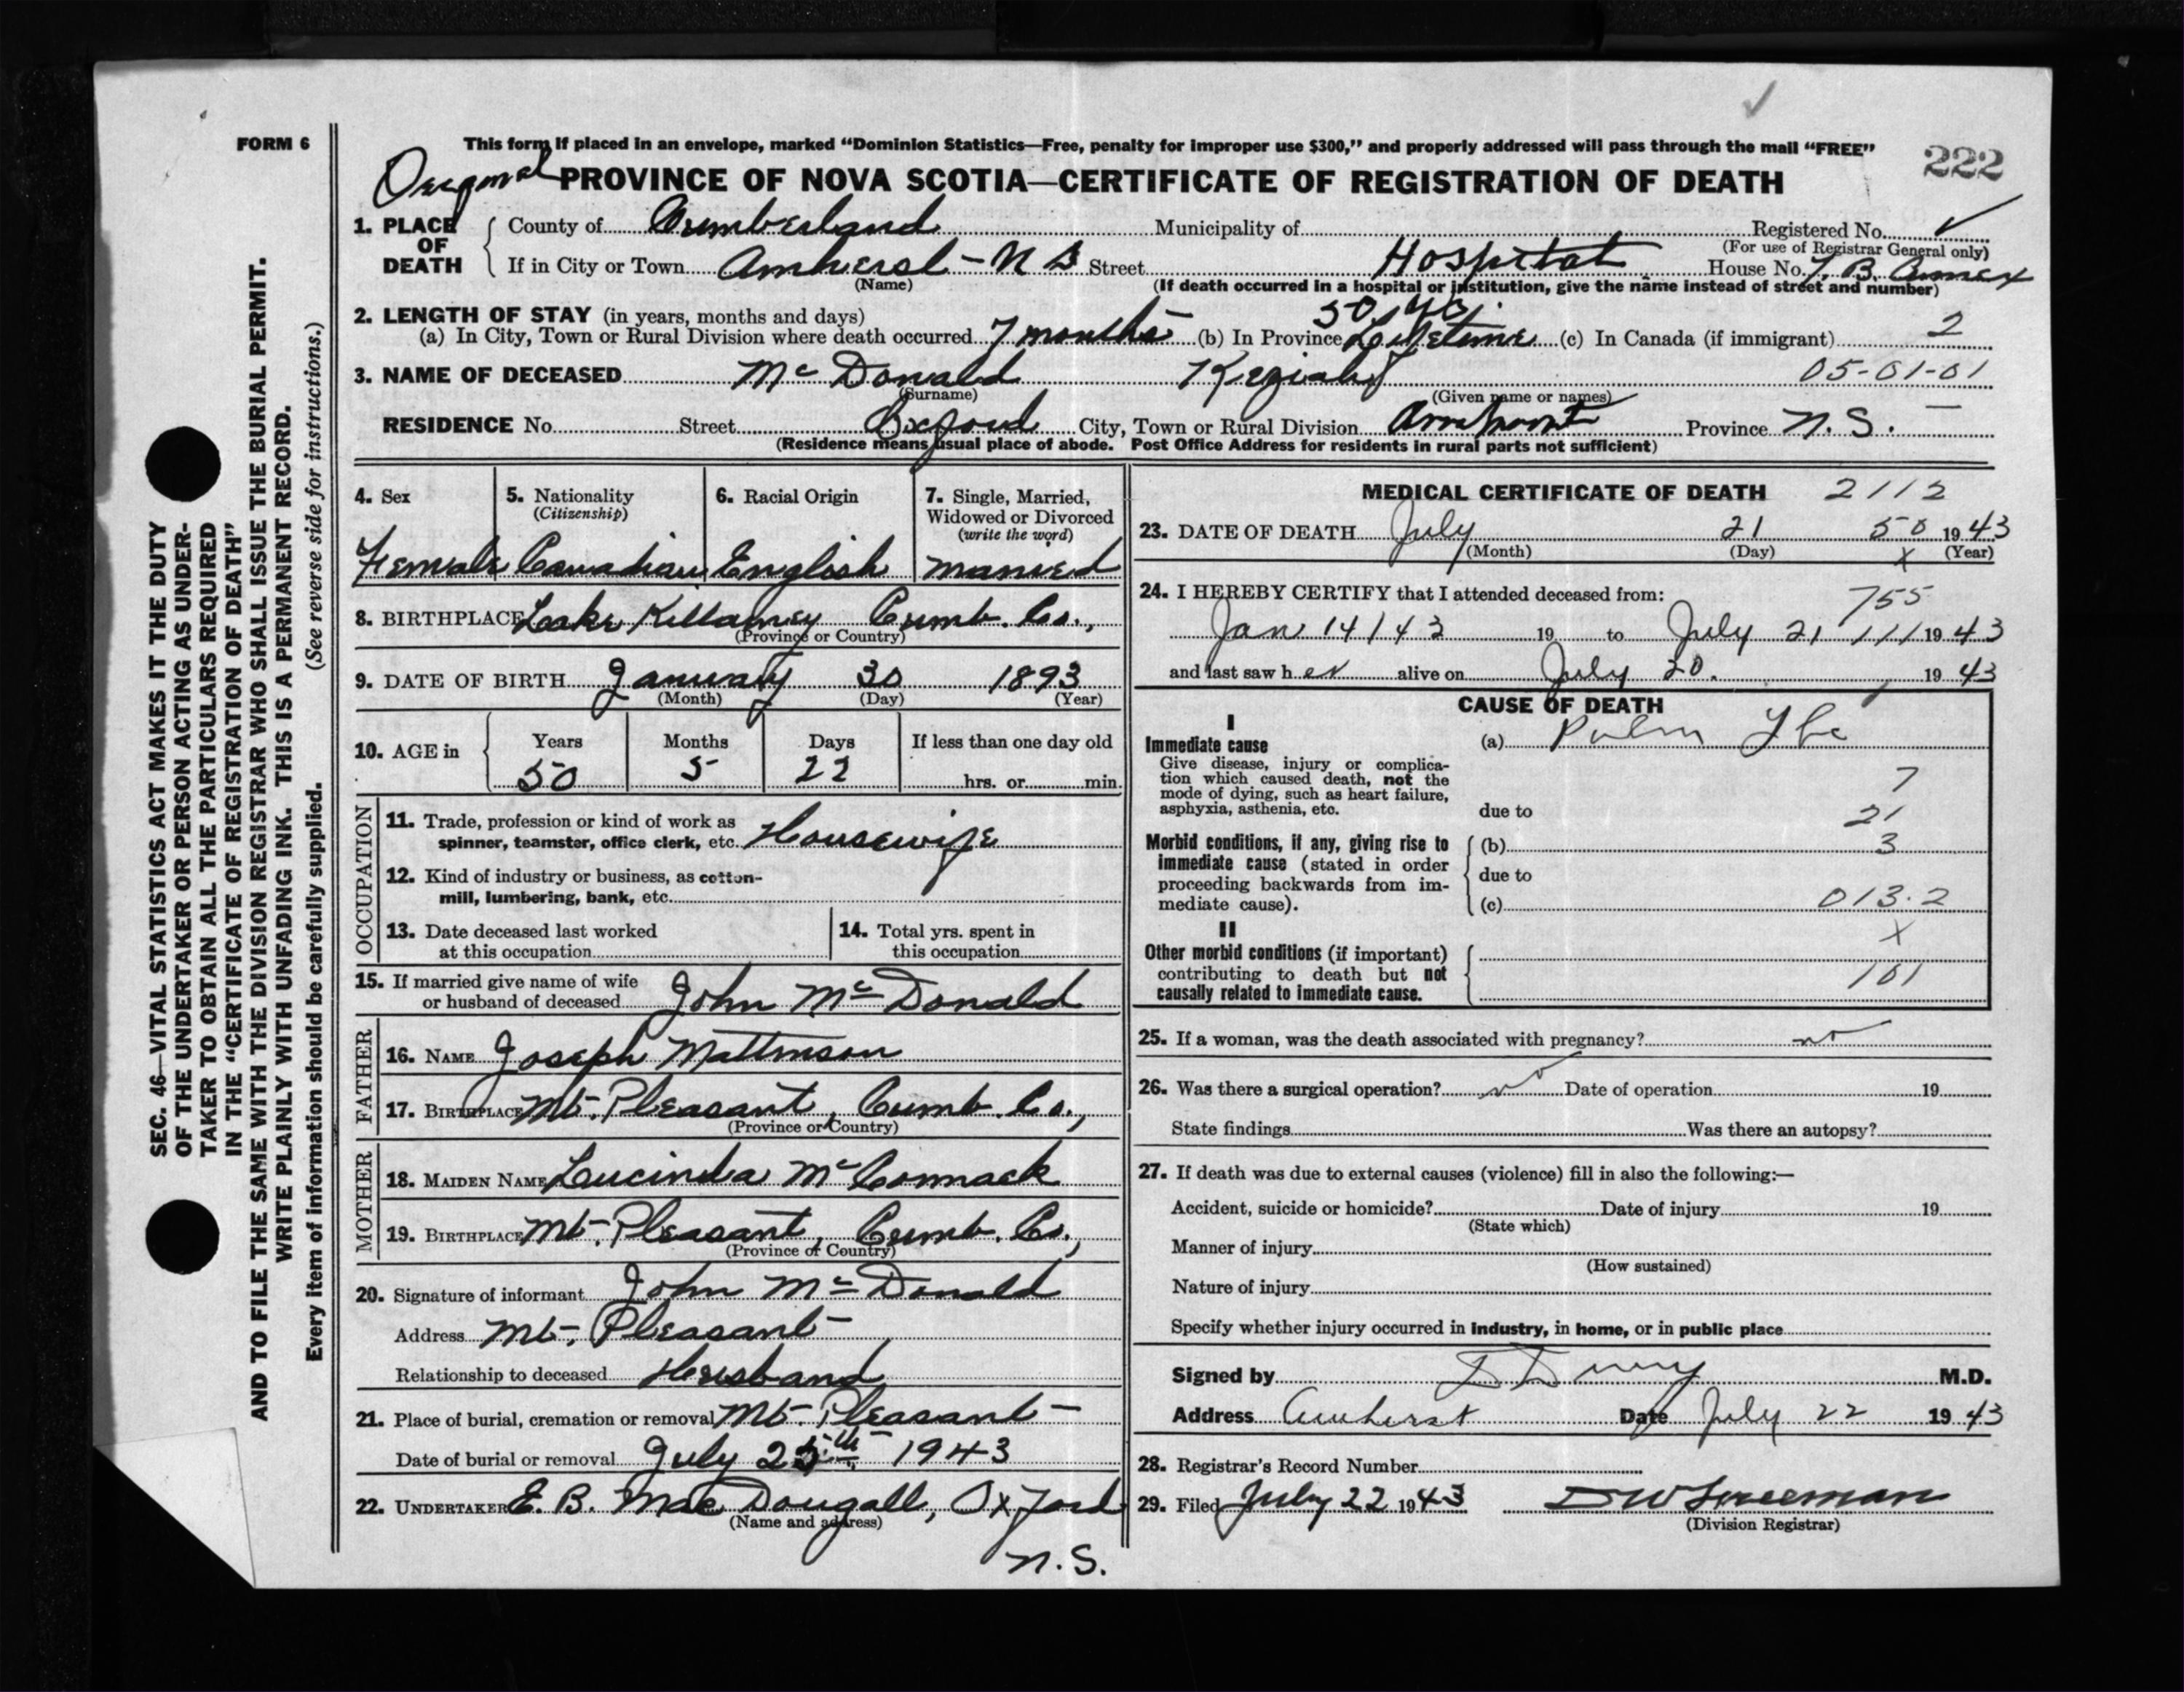 FORM 6
This form if placed in an envelope, marked “Dominion Statistics—Free, penalty for improper use $300,” and properly addressed will pass through the mail “FREE”
222
PROVINCE OF NOVA SCOTIA—CERTIFICATE OF REGISTRATION OF DEATH
1. PLACE OF DEATH
County of Cumberland Municipality of Registered No.
(For use of Registrar General only)
If in City or Town Amherst - N S Street Hospital House No. T. B. Annex
(Name)
(If death occurred in a hospital or institution, give the name instead of street and number)
2. LENGTH OF STAY (in years, months and days)
50
(a) In City, Town or Rural Division where death occurred 7 months (b) In Province Lifetime (c) In Canada (if immigrant) 2
3. NAME OF DECEASED Mc Donald Keziah 05-01-01
(Surname) (Given name or names)
RESIDENCE No. Street Oxford City, Town or Rural Division Province N. S.
(Residence means usual place of abode. Post Office Address for residents in rural parts not sufficient)
4. Sex
Female
5. Nationality
(Citizenship)
Canadian
6. Racial Origin
English
7. Single, Married,
Widowed or Divorced
(write the word)
Married
8. BIRTHPLACE Lake Killarney Cumb. Co.,
(Province or Country)
9. DATE OF BIRTH January 30 1893
(Month) (Day) (Year)
10. AGE in
Years Months Days If less than one day old
50 5 22 hrs. or min.
OCCUPATION
11. Trade, profession or kind of work as
spinner, teamster, office clerk, etc. Housewife
12. Kind of industry or business, as cotton-
mill, lumbering, bank, etc.
13. Date deceased last worked
at this occupation
14. Total yrs. spent in
this occupation
15. If married give name of wife
or husband of deceased John Mc Donald
FATHER
16. NAME Joseph Mattinson
17. BIRTHPLACE Mt. Pleasant, Cumb. Co.,
(Province or Country)
MOTHER
18. MAIDEN NAME Lucinda Mc Cormack
19. BIRTHPLACE Mt. Pleasant, Cumb. Co.,
(Province or Country)
20. Signature of informant John Mc Donald
Address Mt. Pleasant
Relationship to deceased Husband
21. Place of burial, cremation or removal Mt. Pleasant
Date of burial or removal July 1943
22. UNDERTAKER E. B. Mac Dougall, Oxford
(Name and address)
N.S.
MEDICAL CERTIFICATE OF DEATH 2112
23. DATE OF DEATH July 21 50 1943
(Month) (Day) x (Year)
24. I HEREBY CERTIFY that I attended deceased from:
755
Jan 14/43 19 to July 21 111 1943
and last saw her alive on July 20. 1943
CAUSE OF DEATH
I
Immediate cause
Give disease, injury or complica-
tion which caused death, not the
mode of dying, such as heart failure,
asphyxia, asthenia, etc.
(a) Pulm Tbc
7
due to 21
Morbid conditions, if any, giving rise to
immediate cause (stated in order
proceeding backwards from im-
mediate cause).
(b) 3
due to
(c) 013.2
II
X
Other morbid conditions (if important)
contributing to death but not
causally related to immediate cause.
101
25. If a woman, was the death associated with pregnancy? no
26. Was there a surgical operation? no Date of operation 19
State findings Was there an autopsy?
27. If death was due to external causes (violence) fill in also the following:—
Accident, suicide or homicide? Date of injury 19
(State which)
Manner of injury
(How sustained)
Nature of injury
Specify whether injury occurred in industry, in home, or in public place
Signed by M.D.
Address Amherst Date July 22 1943
28. Registrar's Record Number
29. Filed July 22 1943 D W Freeman
(Division Registrar)
SEC. 46—VITAL STATISTICS ACT MAKES IT THE DUTY
OF THE UNDERTAKER OR PERSON ACTING AS UNDER-
TAKER TO OBTAIN ALL THE PARTICULARS REQUIRED
IN THE “CERTIFICATE OF REGISTRATION OF DEATH”
AND TO FILE THE SAME WITH THE DIVISION REGISTRAR WHO SHALL ISSUE THE BURIAL PERMIT.
WRITE PLAINLY WITH UNFADING INK. THIS IS A PERMANENT RECORD.
Every item of information should be carefully supplied. (See reverse side for instructions.)